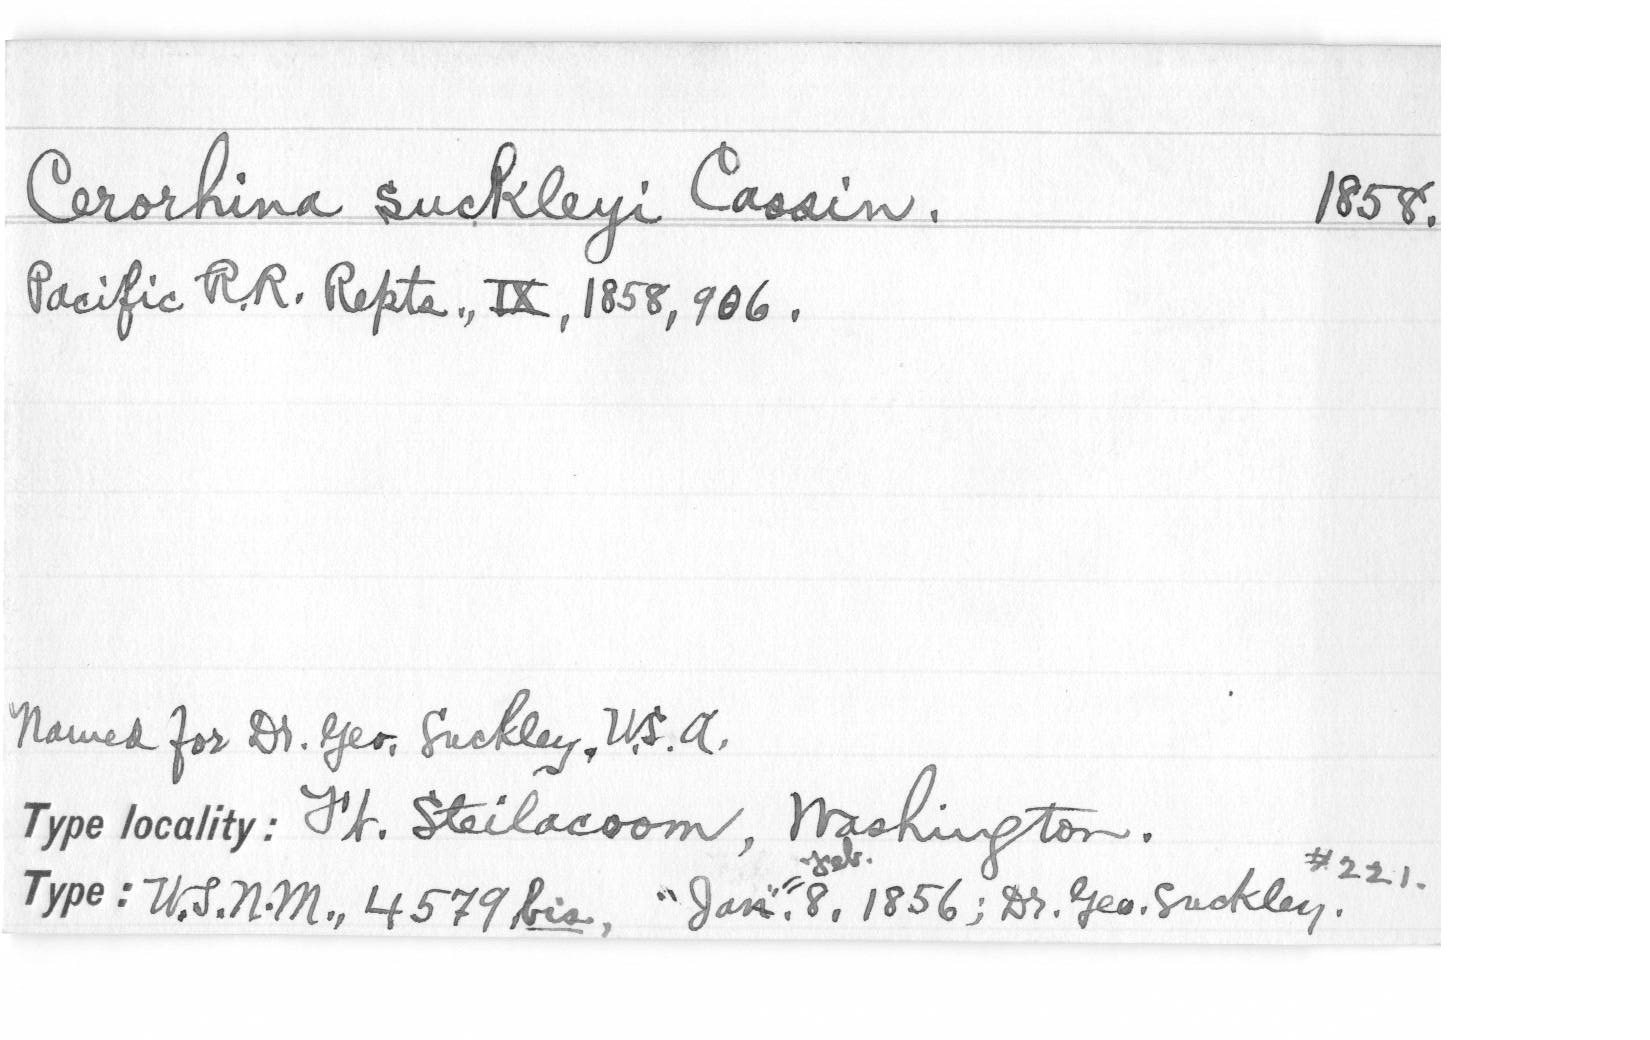 Cerorhina suckleyi Cassin. 1858.
Pacific R.R. Repts., IX, 1858, 906.
Named for Dr. Geo. Suckley, U.S.A.
Type locality: Ft. Steilacoom, Washington.
Feb. #221.
Type: U.S.N.M., 4579 bis, "Jan." = 8, 1856; Dr. Geo. Suckley.